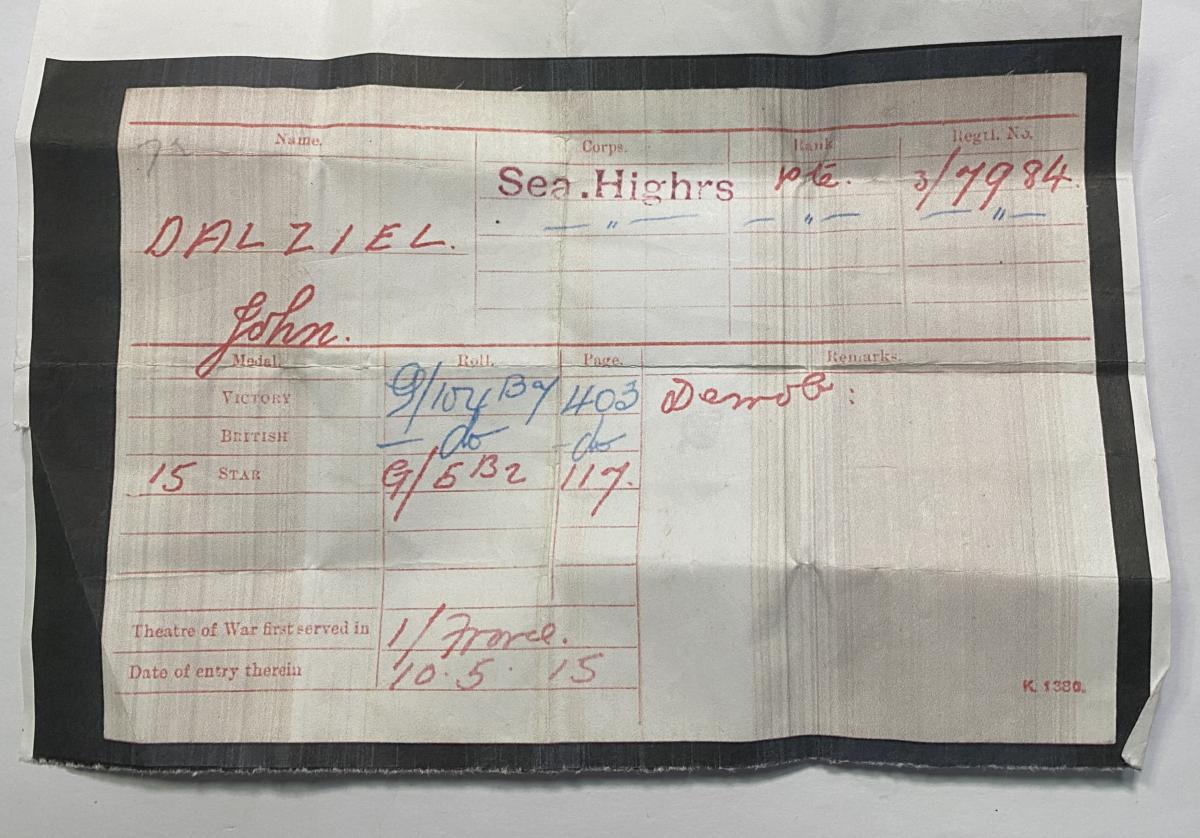 Name. Corps. Rank Regtl. No.
Sea.Highrs Pte. 3/7984.
— " — — " — — " —
DALZIEL.
John.
Medal. Roll. Page. Remarks.
VICTORY G/104 B7 403 Demob:
BRITISH — do — do
15 STAR G/5 B2 117.
Theatre of War first served in 1/ France.
Date of entry therein 10.5.15
K. 1380.